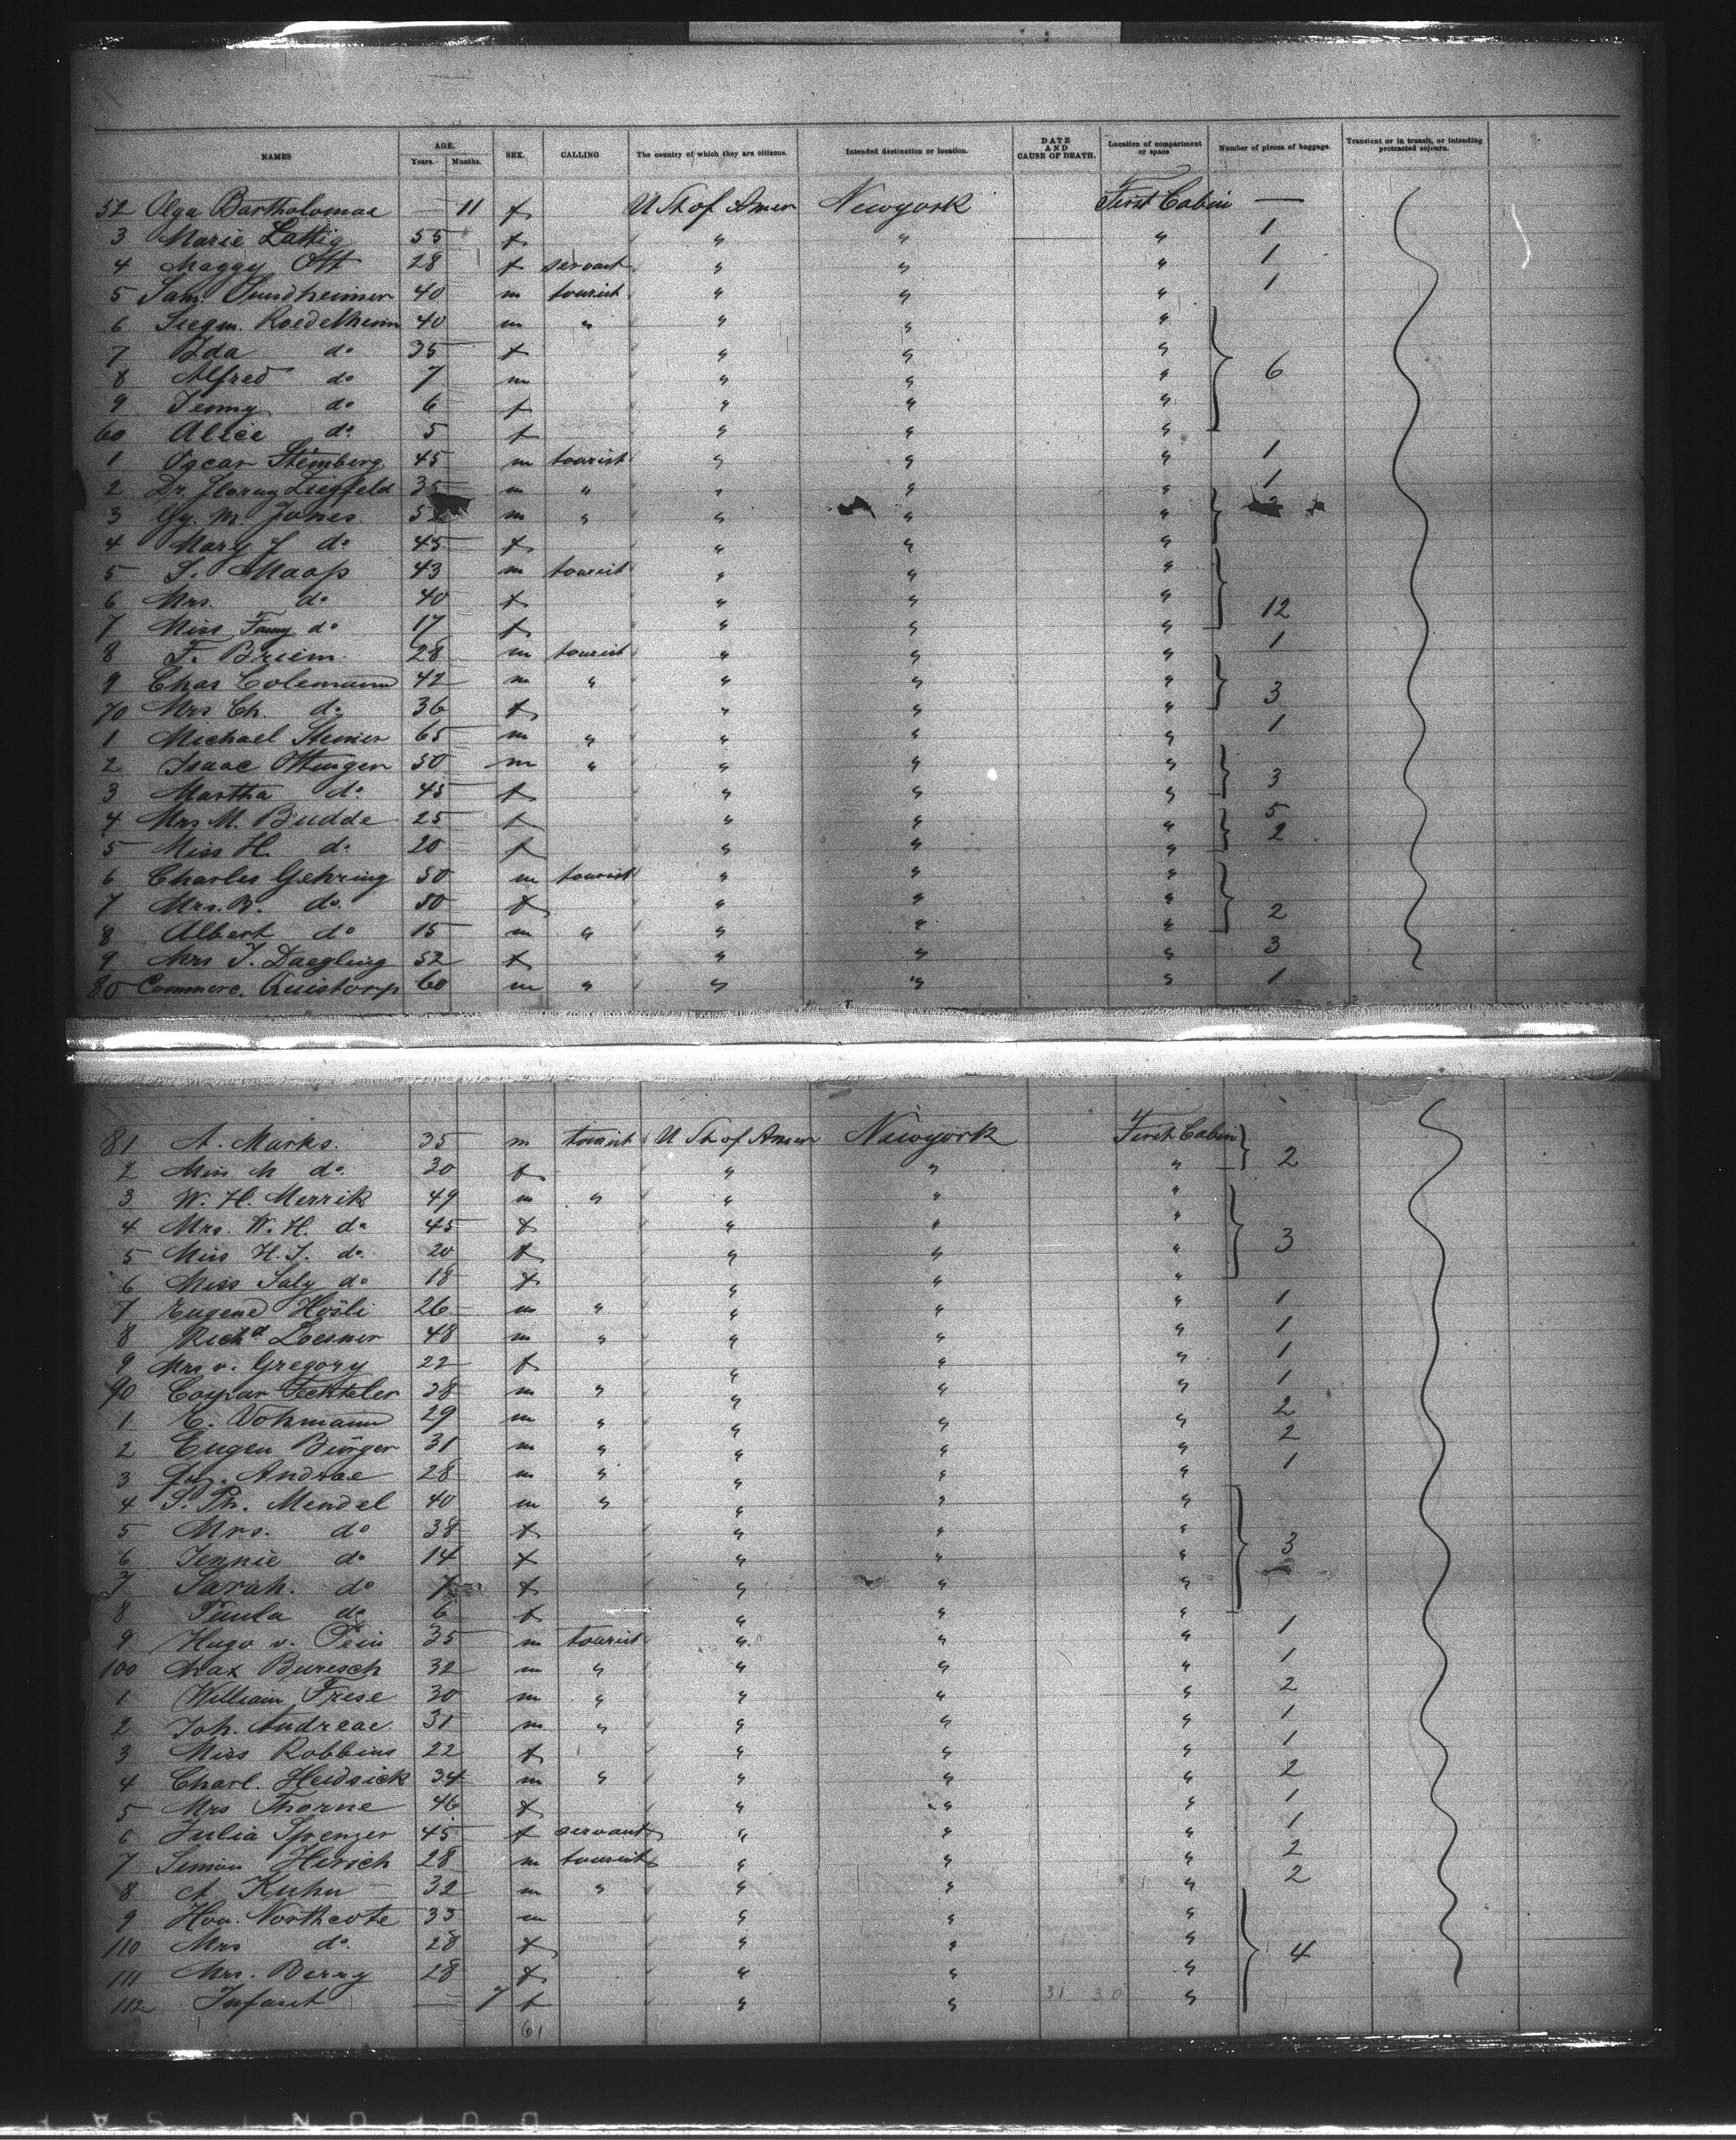 NAMES AGE. Years. Months. SEX. CALLING The country of which they are citizens. Intended destination or location. DATE AND CAUSE OF DEATH. Location of compartment or space Number of pieces of baggage. Transient or in transit, or intending protracted sojourn.
52 Olga Bartholomae — 11 f U St of Amer Newyork First Cabin —
3 Marie Lattig 55 f " " " 1
4 Maggy Ott 28 f servant " " " 1
5 Sam. Sundheimer 40 m tourist " " " 1
6 Siegm. Roedelheim 40 m " " " "
7 Ida do 35 f " " "
8 Alfred do 7 m " " " 6
9 Jenny do 6 f " " "
60 Alice do 5 f " " "
1 Oscar Steinberg 45 m tourist " " " 1
2 Dr. Florenz Ziegfeld 35 m " " " " 1
3 Gg. M. Jones 52 m " " " "
4 Mary J do 45 f " " "
5 S. Maass 43 m tourist " " "
6 Mrs. do 40 f " " " 12
7 Miss Fanny do 17 f " " "
8 F. Briem 28 m tourist " " " 1
9 Chas Colemann 42 m " " " " 3
70 Mrs Ch. do 36 f " " "
1 Michael Steiner 65 m " " " " 1
2 Isaac Ottinger 50 m " " " " 3
3 Martha do 45 f " " "
4 Mrs M. Budde 25 f " " " 5
5 Miss H. do 20 f " " " 2
6 Charles Gehring 50 m tourist " " "
7 Mrs. B. do 50 f " " " 2
8 Albert do 15 m " " " "
9 Mrs J. Daegling 52 f " " " 3
80 Commerc. Quistorp 60 m " " " " 1
81 A. Marks. 35 m tourist U St of Amer Newyork First Cabin 2
2 Miss M do 30 f " " "
3 W. H. Merrik 49 m " " " "
4 Mrs. W. H. do 45 f " " "
5 Miss H. J. do 20 f " " " 3
6 Miss Saly do 18 f " " "
7 Eugene Hösli 26 m " " " " 1
8 Richd Loesner 48 m " " " " 1
9 Mrs v. Gregory 22 f " " " 1
90 Caspar Fechteler 38 m " " " " 1
1 C. Vohmann 29 m " " " " 2
2 Eugen Bürger 31 m " " " " 2
3 Andrae 28 m " " " " 1
4 S. Ph. Mendel 40 m " " " "
5 Mrs. do 38 f " " "
6 Jennie do 14 f " " " 3
7 Sarah. do 7 f " " "
8 Paula do 6 f " " "
9 Hugo v. Pein 35 m tourist " " " 1
100 Max Buresch 32 m " " " " 1
1 William Frese 30 m " " " " 2
2 Joh. Andreae. 31 m " " " " 1
3 Miss Robbins 22 f " " " 1
4 Charl. Heidsick 34 m " " " " 2
5 Mrs Thorne 46 f " " " 1
6 Julia Sprenger 45 f servant " " " 1
7 Simon Hirsch 28 m tourist " " " 2
8 A. Kuhn 32 m " " " " 2
9 Hon. Northcote 33 m " " "
110 Mrs do. 28 f " " " 4
111 Mrs. Berry 28 f " " "
112 Infant — 7 f " " 31 30 "
61